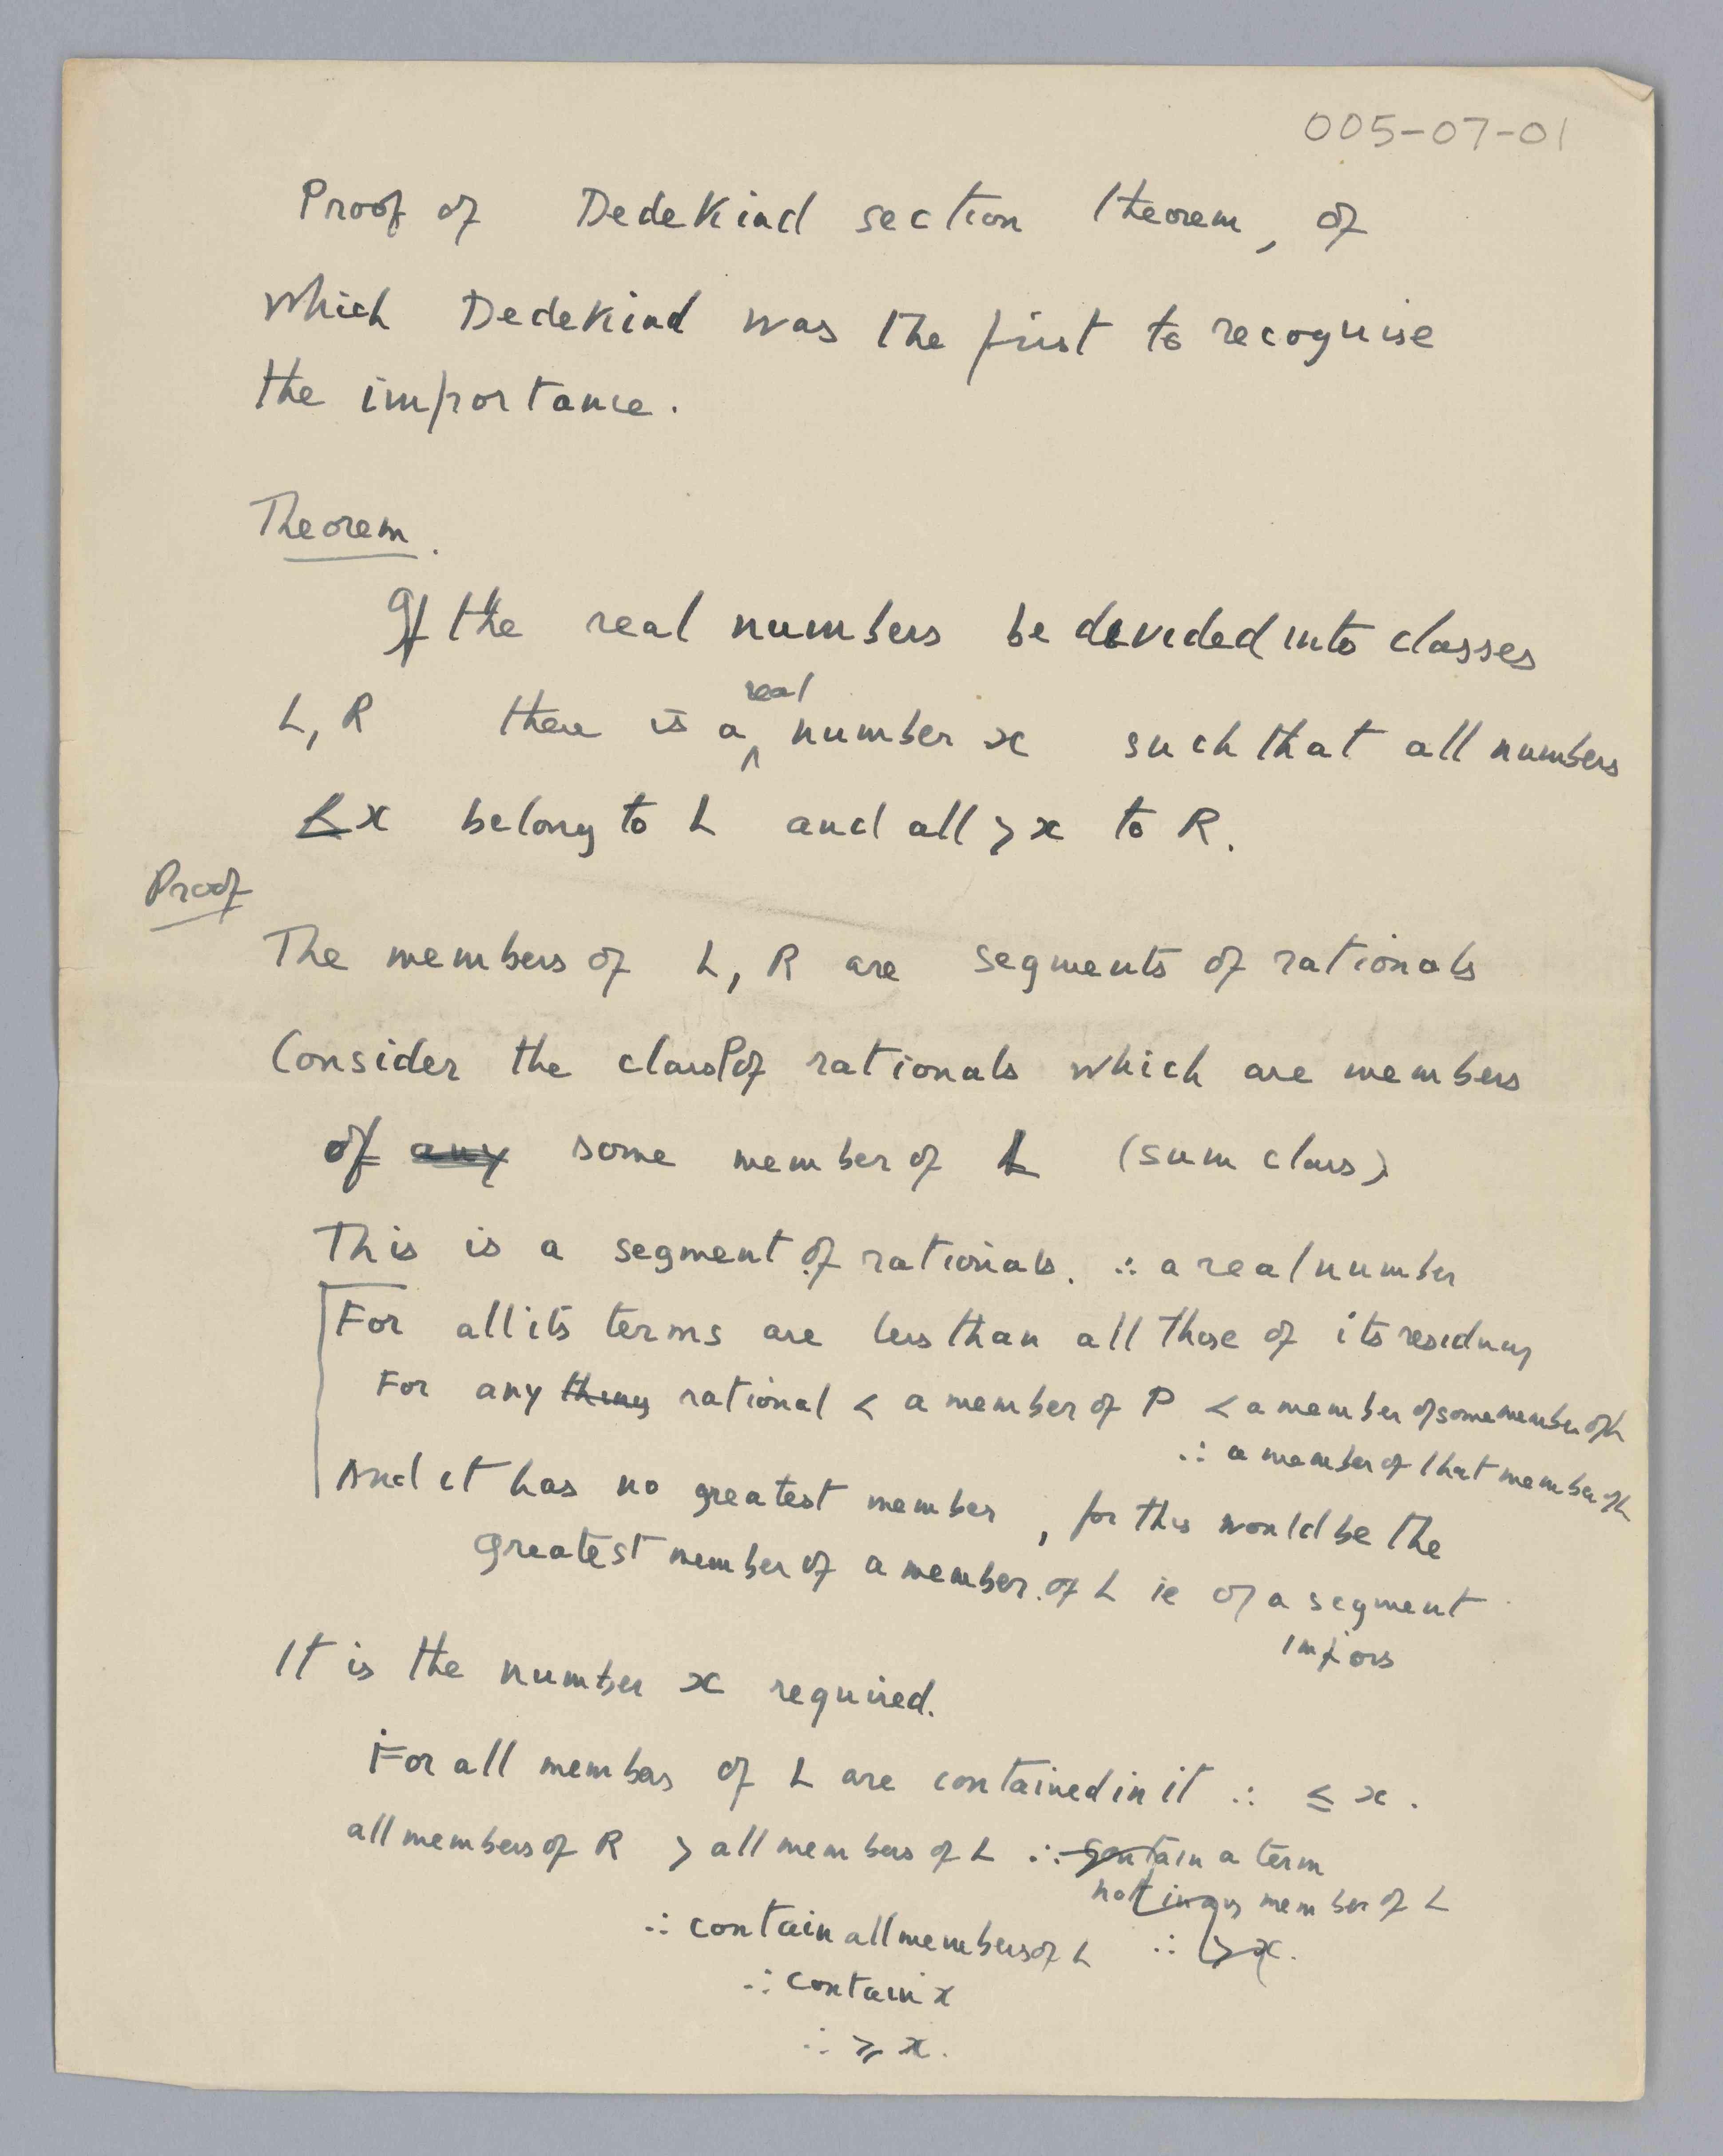 005-07-01
Proof of Dedekind section theorem, of
which Dedekind was the first to recognise
the importance.
Theorem.
If the real numbers be divided into classes
L, R there is a real number x such that all numbers
< x belong to L and all > x to R.
Proof
The members of L, R are segments of rationals
Consider the class P of rationals which are members
of any some member of L (sum class)
This is a segment of rationals. ∴ a real number
For all its terms are less than all those of its residuary
For any thing rational < a member of P < a member of some member of L
∴ a member of that member of L
And it has no greatest member, for this would be the
greatest member of a member of L ie of a segment
impos
It is the number x required.
For all members of L are contained in it ∴ ≤ x.
all members of R > all members of L ∴ contain a term
not in any member of L
∴ contain all members of L ∴ > x.
∴ contain x
∴ ≥ x.